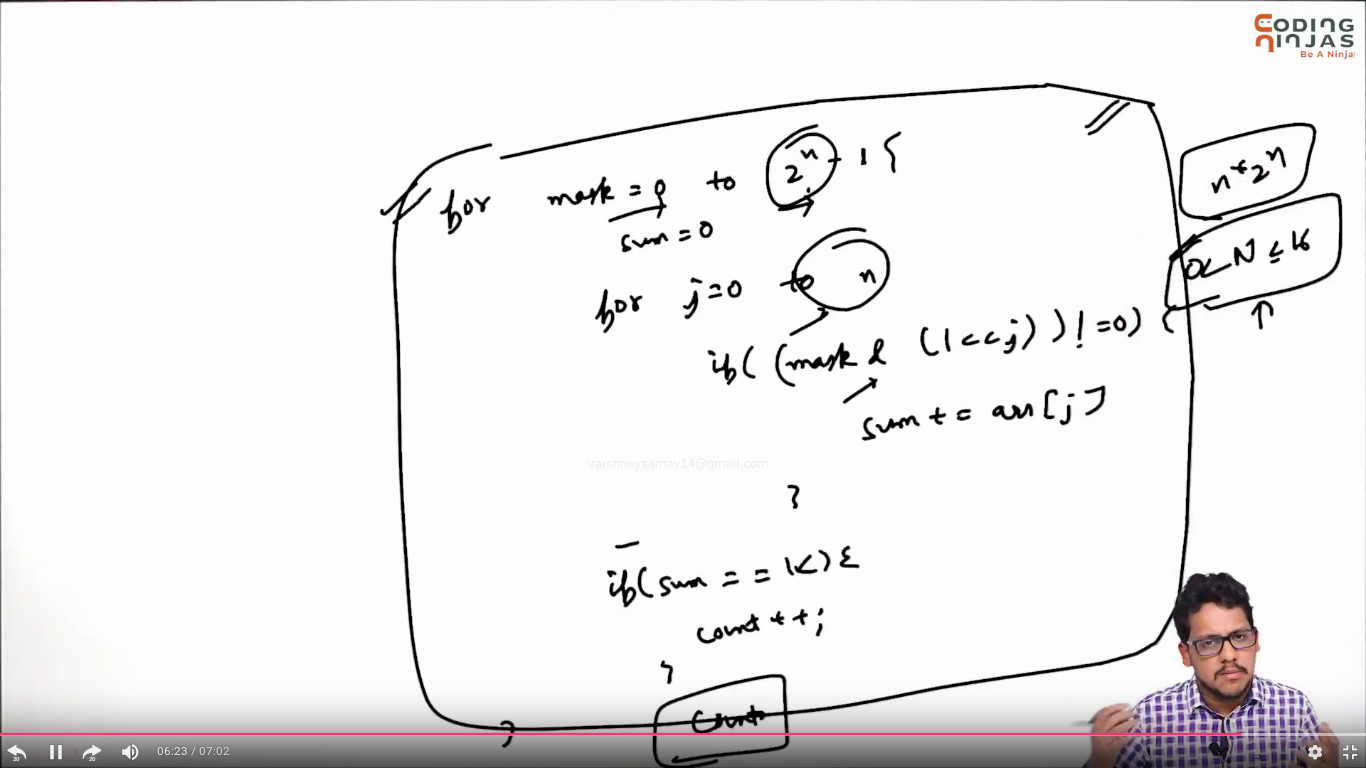 CODING
NINJAS
Be A Ninja
for mask = 0 to 2^n - 1 {
sum = 0
for j = 0 to n
if( (mask & (1<<j) ) != 0) {
sum += arr[j]
}
if(sum == K) {
count++;
}
count
}
n*2^n
0< N ≤ 16
varshneysamay14@gmail.com
20
20
06:23 / 07:02